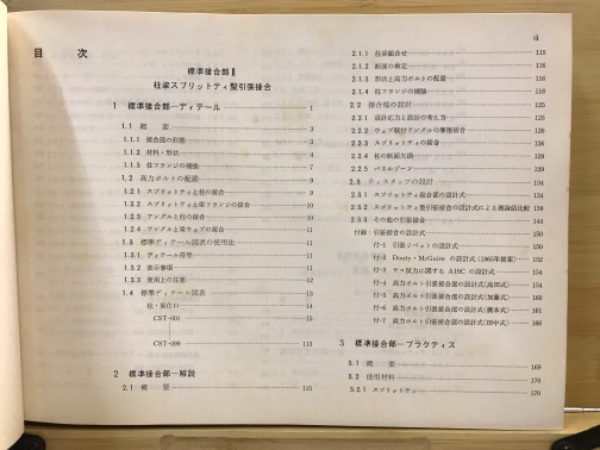 目 次
標準接合部 Ⅱ
柱梁スプリットティ型引張接合
1 標準接合部―ディテール 1
1.1 概 要 3
1.1.1 接合部の形態 3
1.1.2 材料・形状 4
1.1.3 柱フランジの補強 7
1.2 高力ボルトの配置 9
1.2.1 スプリットティと柱の接合 9
1.2.2 スプリットティと梁フランジの接合 10
1.2.3 アングルと柱の接合 10
1.2.4 アングルと梁ウェブの接合 11
1.3 標準ディテール図表の使用法 11
1.3.1 ディテール符号 11
1.3.2 表示事項 11
1.3.3 使用上の注意 12
1.4 標準ディテール図表 13
柱・梁仕口 14
CST-001 15
CST-099 113
2 標準接合部―解説
2.1 概 要 115
2.1.1 柱梁組合せ 115
2.1.2 断面の検定 116
2.1.3 形状と高力ボルトの配置 116
2.1.4 柱フランジの補強 118
2.2 接合部の設計 125
2.2.1 設計応力と設計の考え方 125
2.2.2 ウェブ取付アングルの摩擦接合 126
2.2.3 スプリットティの接合 126
2.2.4 柱の断面欠損 129
2.2.5 パネルゾーン 129
2.3 ティスタッブの設計 134
2.3.1 スプリットティ接合部の設計式 134
2.3.2 スプリットティ型引張接合の設計式による理論値比較 139
2.3.3 その他の引張接合 144
付録:引張接合の設計式 150
付-1 引張リベットの設計式 150
付-2 Douty・McGuire の設計式(1965年提案) 152
付-3 テコ反力に関する AISC の設計式 154
付-4 高力ボルト引張接合部の設計式(高田式) 154
付-5 高力ボルト引張接合部の設計式(加藤式) 160
付-6 高力ボルト引張接合部の設計式(橋本式) 161
付-7 高力ボルト引張接合部の設計式(田中式) 166
3 標準接合部―プラクティス
3.1 概 要 169
3.2 使用材料 170
3.2.1 スプリットティ 170